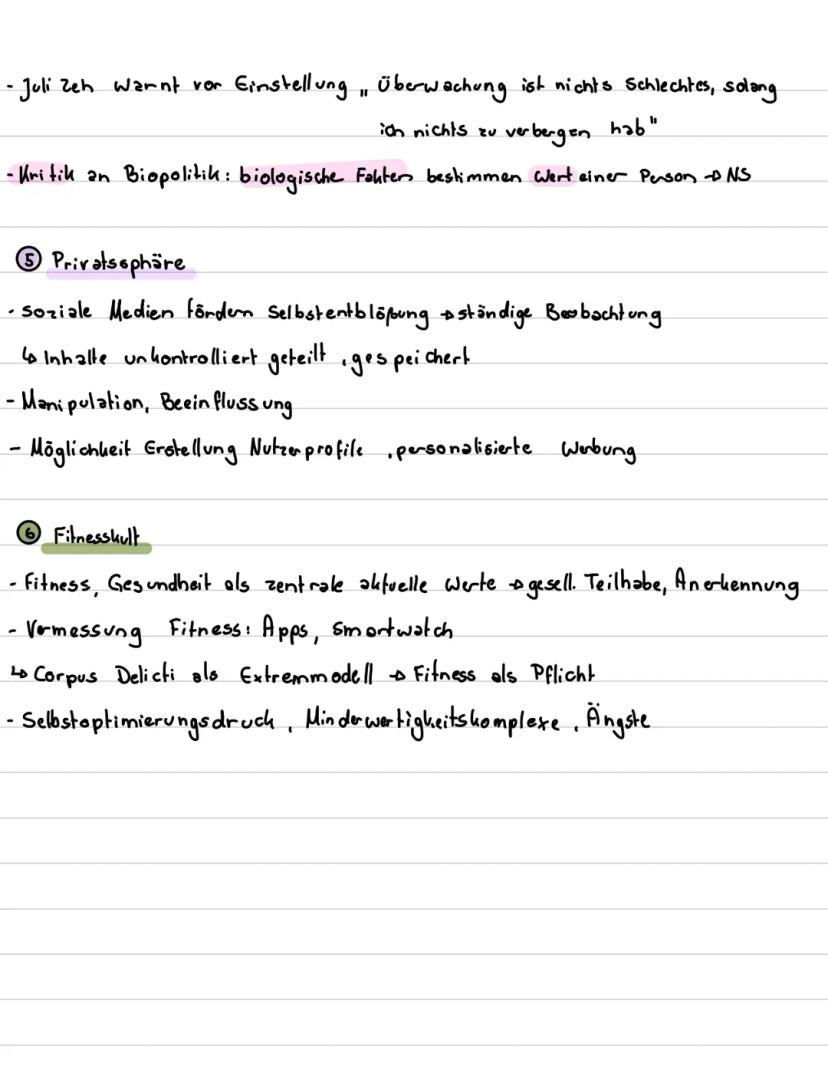 - Juli Zeh warnt vor Einstellung „Überwachung ist nichts Schlechtes, solang
ich nichts zu verbergen hab"
- Kritik an Biopolitik: biologische Fakten bestimmen Wert einer Person → NS
⑤ Privatssphäre
- soziale Medien fördern Selbstentblößung → ständige Beobachtung
↳ Inhalte unkontrolliert geteilt, gespeichert
- Manipulation, Beeinflussung
- Möglichkeit Erstellung Nutzerprofile, personalisierte Werbung
⑥ Fitnesskult
- Fitness, Gesundheit als zentrale aktuelle Werte → gesell. Teilhabe, Anerkennung
- Vermessung Fitness: Apps, Smartwatch
↳ Corpus Delicti als Extremmodell → Fitness als Pflicht
- Selbstoptimierungsdruck, Minderwertigkeitskomplexe, Ängste